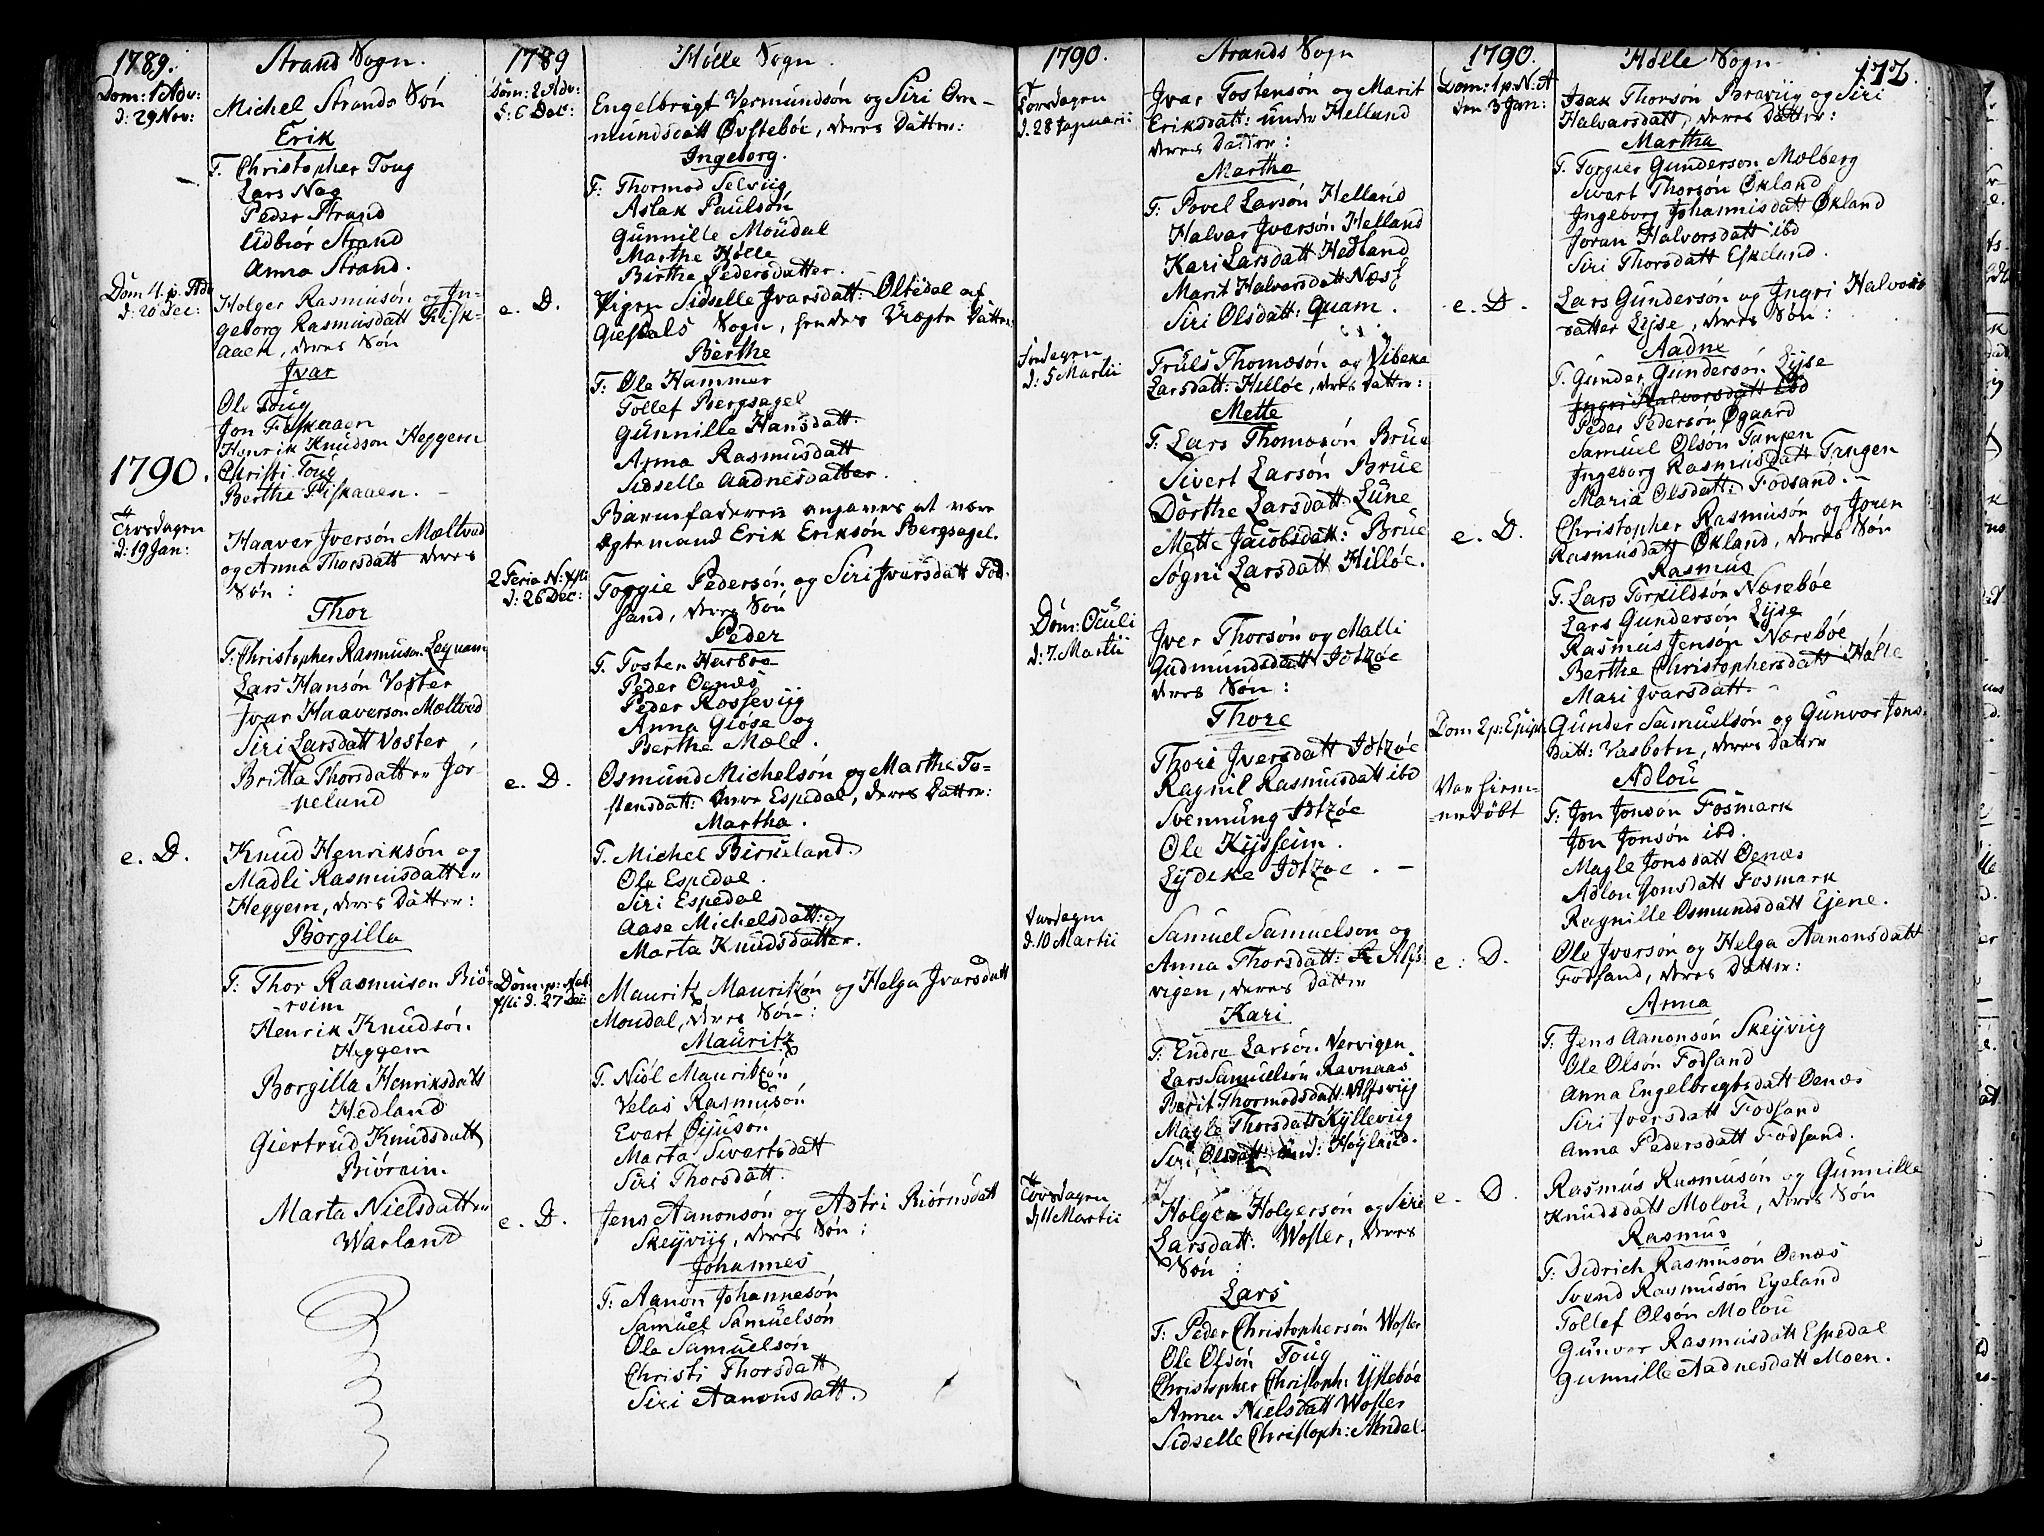 1789.
Strand Sogn.
Dom: 1 Adv:
d: 29 Nov:
Michel Strands Søn
Erik
T. Christopher Toug
Lars Nag
Peder Strand
Udbiør Strand
Anna Strand.
Dom 4. p. Adv
d: 20 Dec:
Holger Rasmusøn og In-
geborg Rasmusdatt Fisk-
aaen, deres Søn
Jvar
Ole Toug
Jon Fiskaaen
Henrik Knudson Heggem
Christi Toug
Berthe Fiskaaen.
1790.
Tirsdagen
d: 19 Jan:
Haaver Jversøn Mæltved
og Anna Thorsdatt deres
Søn:
Thor
T: Christopher Rasmuson Lequam
Lars Hansøn Voster
Jvar Haaverson Mæltved
Siri Larsdatt Voster
Britta Thorsdatter Jør-
pelund
e. D.
Knud Henriksøn og
Madli Rasmusdatter
Heggem, deres Datter:
Borgilla
T: Thor Rasmuson Biø-
reim
Henrik Knudsøn
Heggem
Borgilla Henriksdatt
Hedland
Giertrud Knudsdatt
Biørein.
Marta Nielsdatter
Warland
1789
Hølle Sogn.
Dom: 2 Adv:
d: 6 Dec:
Engelbrigt Vermundsøn og Siri Om-
mundsdatt Øvstebøe, deres Datter:
Ingeborg.
T: Thormod Selviig
Aslak Paulsøn
Gunnille Moudal
Marthe Hølle
Birthe Pedersdatter.
e. D.
Pigen Sidselle Jvarsdatt: Oltedal af
Giestals Sogn, hendes Uægte Datter:
Berthe
T: Ole Hammer
Tollef Bergsagel
Gunnille Hansdatt.
Anna Rasmusdatt
Sidselle Aadnesdatter.
Barnefaderen angaves at være
Ægtemand Erik Eriksøn Bergsagel.
2 Feria N:
d: 26 Dec:
Torgie Pedersøn og Siri Jvarsdatt Fod-
sand, deres Søn
Peder
T. Tosten Hasbro
Peder Oenæs
Peder Rossevиig
Anna Giøse og
Berthe Mæle.
e. D.
Osmund Michelsøn og Marthe To-
stensdatt: Espedal, deres Datter:
Martha.
T. Michel Birkeland
Ole Espedal.
Siri Espedal
Aase Michelsdatt: og
Marta Knudsdatter.
Dom: p: Nat
d. 27 Dec:
Mauritz Mauritzøn og Helga Jvarsdatt
Moudal, deres Søn:
Mauritz
T. Niøl Mauritzøn
Velas Rasmusøn
Evart Øijusøn
Marta Sivartsdatt
Siri Thorsdatt.
e. D.
Jens Aanonsøn og Astri Biørnsdatt
Skeijviig, deres Søn:
Johannes
T: Aanon Johannesøn
Samuel Samuelsøn
Ole Samuelsøn
Christi Thorsdatt
Siri Aanonsdatt.
1790.
Strands Sogn
Torsdagen
d. 28 Januarii
Jvar Tostensøn og Marit
Eriksdatt: under Helland
deres Datter:
Martha
T: Povel Larsøn Helland
Halvar Jversøn Helland
Kari Larsdatt Hedland
Marit Halvorsdatt Næss
Siri Olsdatt: Quam.
Fredagen
d: 5 Martii
Truls Thomæsøn og Vibeka
Larsdatt: Hilløe, deres Datter:
Mette
T. Lars Thomasøn Brue
Sivert Larsøn Brue
Dorthe Larsdatt: Lune
Mette Jacobsdatt: Brue
Søgni Larsdatt Hilløe.
Dom: Oculi
d: 7. Martii
Jver Thorsøn og Malli
Gudmundsdatt Idtzøe
deres Søn:
Thore
Thori Jversdatt Idtzøe
Ragnil Rasmusdatt ibd
Svennung Idtzøe
Ole Kijsseim.
Lydeke Idtzoe.
d. 10 Martii
Samuel Samuelson og
Anna Thorsdatt: Alfs-
vigen, deres Datter
Kari
T: Endre Larsøn Vervigen
Lars Samuelsøn Ravnaas
Berit Thormodsdatt: Alfsviig
Magle Thorsdatt Kylleviig
Siri Olsdatt: und: Høyland.
Torsdagen
d. 11 Martii
Holger Holgersøn og Siri
Larsdatt: Woster, deres
Søn:
Lars
T: Peder Christophersøn Woster
Ole Olsøn Toug
Christopher Christoph: Ystebøe
Anna Nielsdatt Woster
Sidselle Christoph: Mendal.
1790.
Hølle Sogn
172.
Dom: 1 p. N: A
den 3 Jan:
Isak Thorsøn Braviig og Siri
Halvarsdatt, deres Datter:
Martha
T. Torgier Gundersøn Mælberg
Sivert Thorsøn Økland
Ingeborg Johannisdatt Økland
Joran Halvorsdatt ibd
Siri Thorsdatt Eskeland.
e. D.
Lars Gundersøn og Ingri Halvors-
datter Lyse, deres Søn:
Aadne
T. Gunder Gundersøn Lyse
Ingri Halvorsdatt ibd
Peder Pedersøn Øgaard
Samuel Olsøn Tansen
Ingeborg Rasmusdatt Tengen
Maria Olsdatt: Fodsand.
e. D.
Christopher Rasmusøn og Joren
Rasmusdatt Økland, deres Søn
Rasmus
T. Lars Torkildsøn Nærebøe
Lars Gundersøn Lyse
Rasmus Jensøn Nærebøe
Berthe Christophersdatt Hølle
Mari Jvarsdatt.
Dom 2 p: Epiph.
Gunder Samuelsøn og Gunvor Jons-
datt: Vasbotn, deres Datter
Var hiem-
medøbt
Adlou
T: Jon Jonsøn Fosmark
Jon Jonsøn ibd.
Magle Jonsdatt Oenæs
Adlou Jonsdatt Fosmark
Ragnille Osmundsdatt Ejene.
e. D.
Ole Jvarsøn og Helga Aanonsdatt
Fodsand, deres Datter:
Anna
T: Jens Aanonsøn Skeijviig
Ole Olsøn Fodsand
Anna Engelbregtsdatt Oenæs
Siri Jversdatt Fodsand
Anna Pedersdatt Fodsand.
e. D.
Rasmus Rasmusøn og Gunnille
Knudsdatt Molou, deres Søn
Rasmus
T: Didrich Rasmusøn Oenæs
Svend Rasmusøn Egeland
Tollef Olsøn Molou
Gunvor Rasmusdatt Espedal
Gunnille Aadnesdatt Moen.